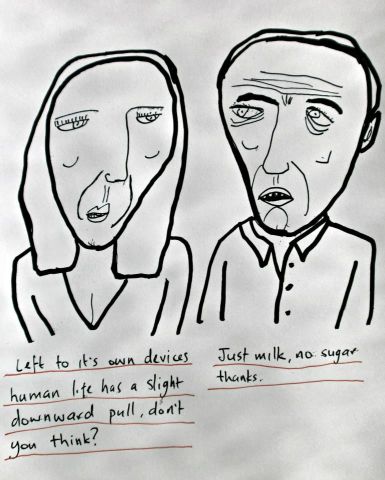 Left to it's own devices
human life has a slight
downward pull, don't
you think?
Just milk, no sugar
thanks.